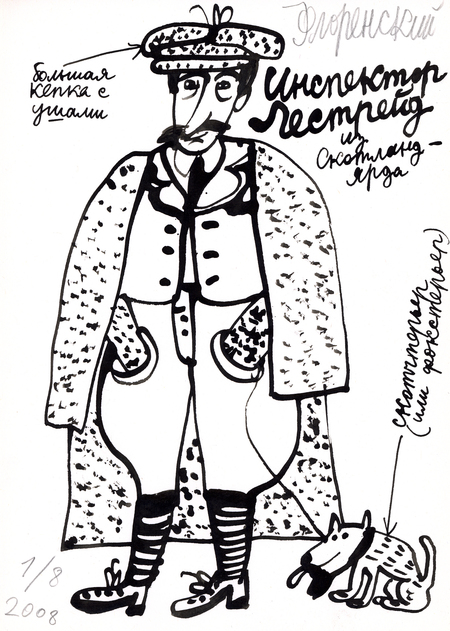 Флоренский
большая
кепка с
ушами
Инспектор
Лестрейд
из
Скотланд-
ярда
скотчтерьер
(или фокстерьер)
1/8
2008